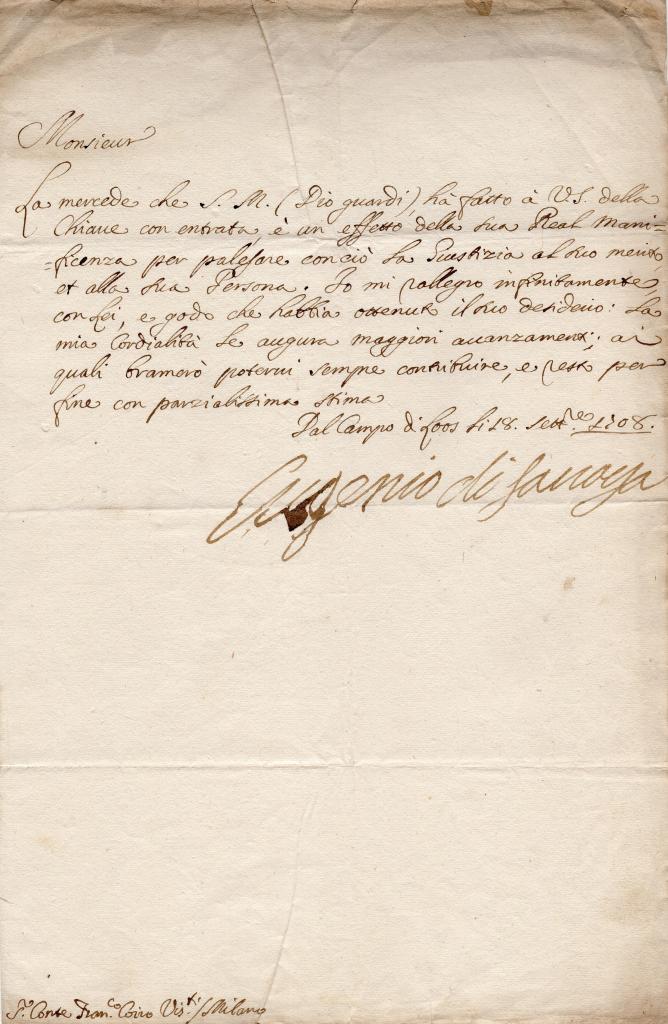 Monsieur
La mercede che S. M. (Dio guardi) hà fatto à V.S. della
Chiaue con entrata, è un effetto della sua Real Mani=
=ficenza per palesare conciò La Giustizia al suo merito,
et alla sua Persona. Io mi rallegro infinitamente
con Lei, e godo che habbia ottenuto il suo desiderio: La
mia Cordialità Le augura maggiori auanzamenti; ai
quali bramerò poterui sempre contribuire, e resto per
fine con parzialissima stima
Dal Campo di Loos Li 18. Settre 1708.
Eugenio di Sauoya
Sr Conte Franco Coiro Visti / Milano